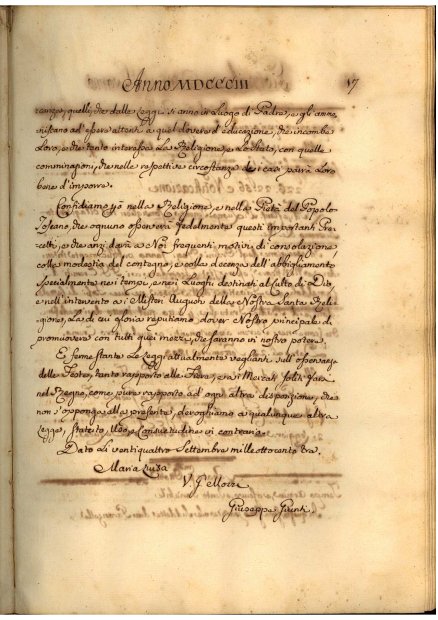 Anno MDCCCIII 17
renza, quelli, che dalle Leggi si anno in Luogo di Padre, e gli ammo,
niscano ad essere attenti a quel dovere d'educazione, che incombe
Loro, e che tanto interessa La Religione, e Lo Stato, con quelle
comminazioni, che nelle respettive circostanze de i casi parrà Loro
bene d'imporre.
Confidiamo però nella Religione, e nella Pietà del Popolo
Toscano, che ognuno osserverà fedelmente questi importanti Pre,
cetti, e che anzi darà a Noi frequenti motivi di consolazione
colla modestia del contegno, e colla decenza dell'abbigliamento
specialmente nei tempi, e nei Luoghi destinati al culto di Dio,
e nell'intervento a i Misteri Augusti della Nostra Santa Reli,
gione, La di cui gloria reputiamo dover Nostro principale di
promuovere con tutti quei mezzi, che saranno in nostro potere.
E ferme stanti Le Leggi attualmente veglianti sull'osservanza
delle Feste, tanto rapporto alle Fiere, e ai Mercati soliti farsi
nel Regno, come pure rapporto ad ogni altra disposizione, che
non s'opponga alla presente, deroghiamo a qualunque altra
Legge, Statuto, Uso, e Consuetudine in contrario.
Dato Li ventiquattro Settembre mille ottocento tre.
Maria Luisa
V.
Giuseppe Giunti.